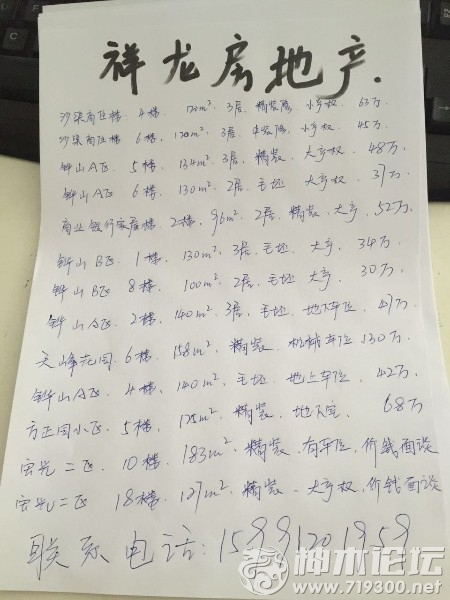 祥龙房地产.
沙渠商住楼 4楼 120m² 3居 精装修 小产权 63万
沙渠商住楼 6楼 120m² 3居 未装修 小产权 45万
铧山A区 5楼 134m² 3居 精装 大产权 48万
铧山A区 6楼 130m² 2居 毛坯 大产权 37万
商业银行家属楼 2楼 96m² 2居 精装 大产 52万
铧山B区 1楼 130m² 3居 毛坯 大产 34万
铧山B区 8楼 100m² 2居 毛坯 大产 30万
铧山A区 2楼 140m² 3居 毛坯 地下车位 47万
天峰花园 6楼 158m² 精装 机械车位 130万
铧山A区 4楼 140m² 毛坯 地上车位 42万
方正园小区 5楼 125m² 精装 地下室 68万
宏光二区 10楼 183m² 精装 有车位 价钱面谈
宏光二区 18楼 127m² 精装 大产权 价钱面谈
联系电话: 15991201959
神木论坛
www.719300.net